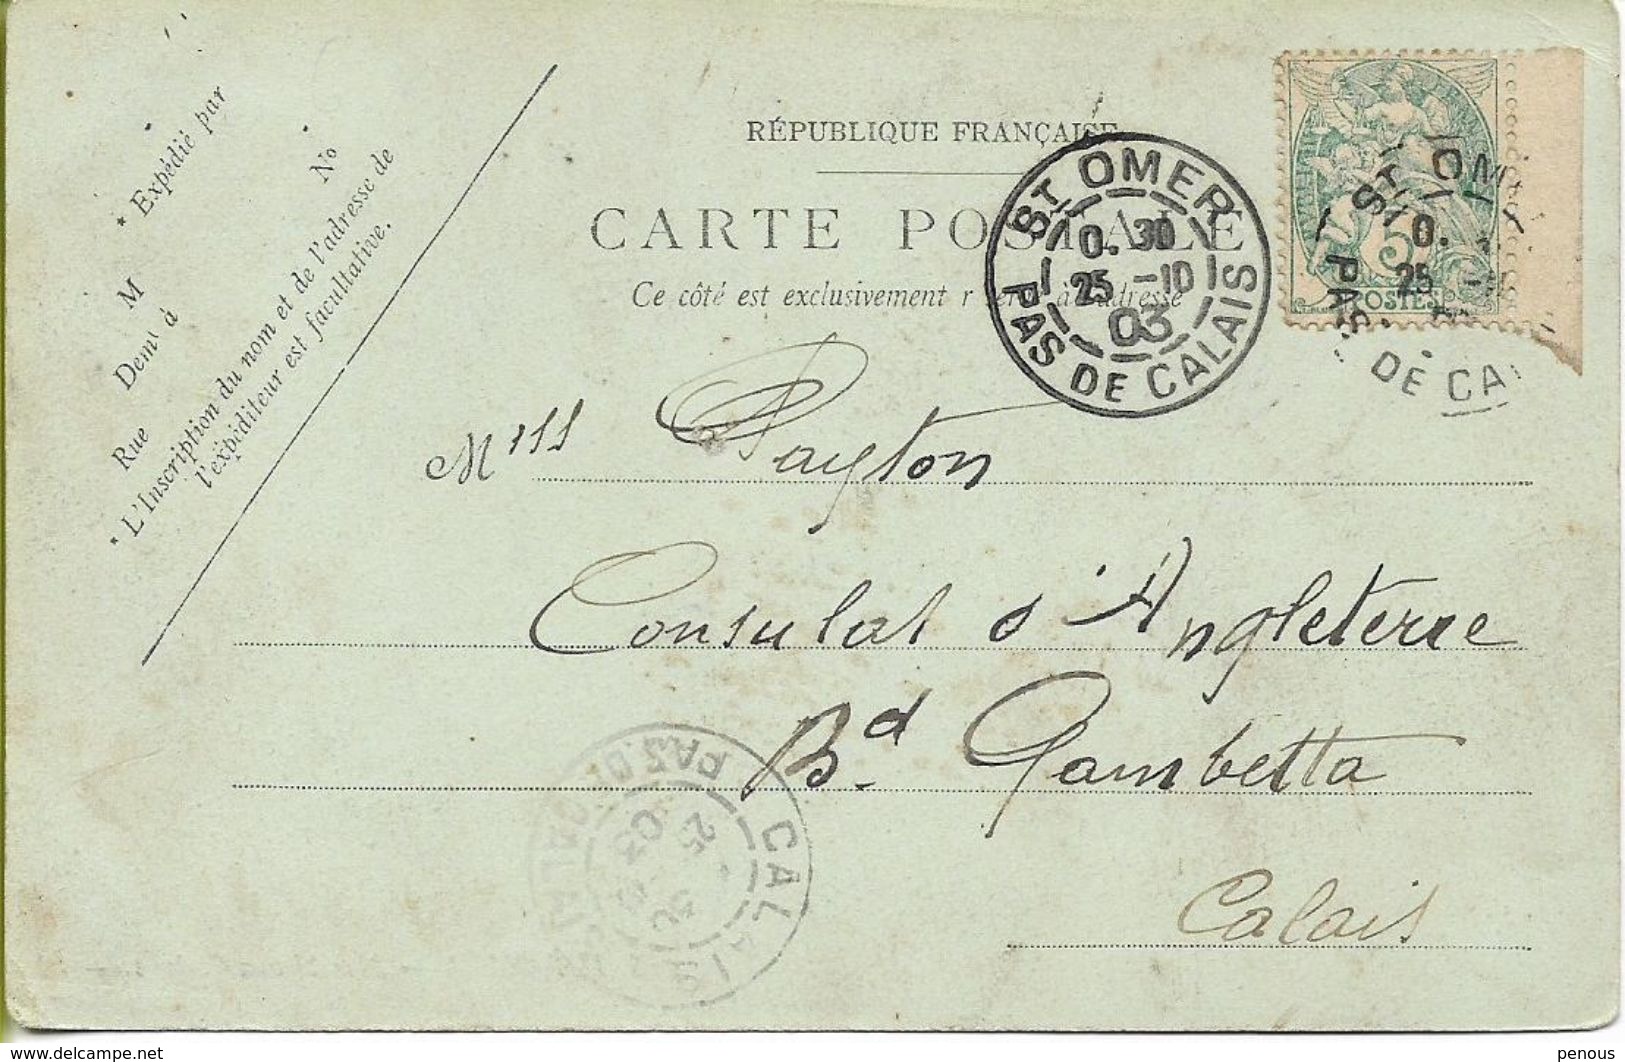 RÉPUBLIQUE FRANÇAISE
CARTE POSTALE
Ce côté est exclusivement r à l'adresse
* Expédié par
M No
Demt à
Rue
* L'Inscription du nom et de l'adresse de
l'expéditeur est facultative.
ST OMER
0. 30
25 -10
03
PAS DE CALAIS
ST OM
0.
25
PAS DE CA
5
POSTES
Miss Payton
Consulat d'Angleterre
Bd. Gambetta
Calais
CALAIS
PAS D
25
03
www.delcampe.net
penous